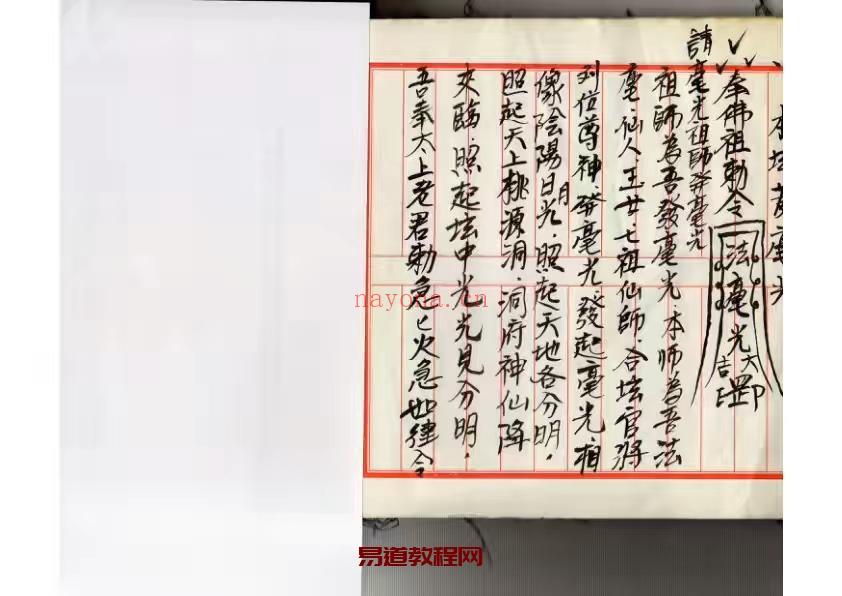 奉佛祖勅令
法毫光大吉罡印
請毫光祖師發毫光
祖師為吾發毫光本師為吾法
毫、仙人、玉女、七祖仙師、合坛官將
列位尊神、發毫光、發起毫光、相
像陰陽日月光、照起天地各分明、
照起天上桃源洞、洞府神仙降
來臨、照起坛中光光見分明、
吾奉太上老君勅急匕火急如律令
nayona.cn
易道教程网